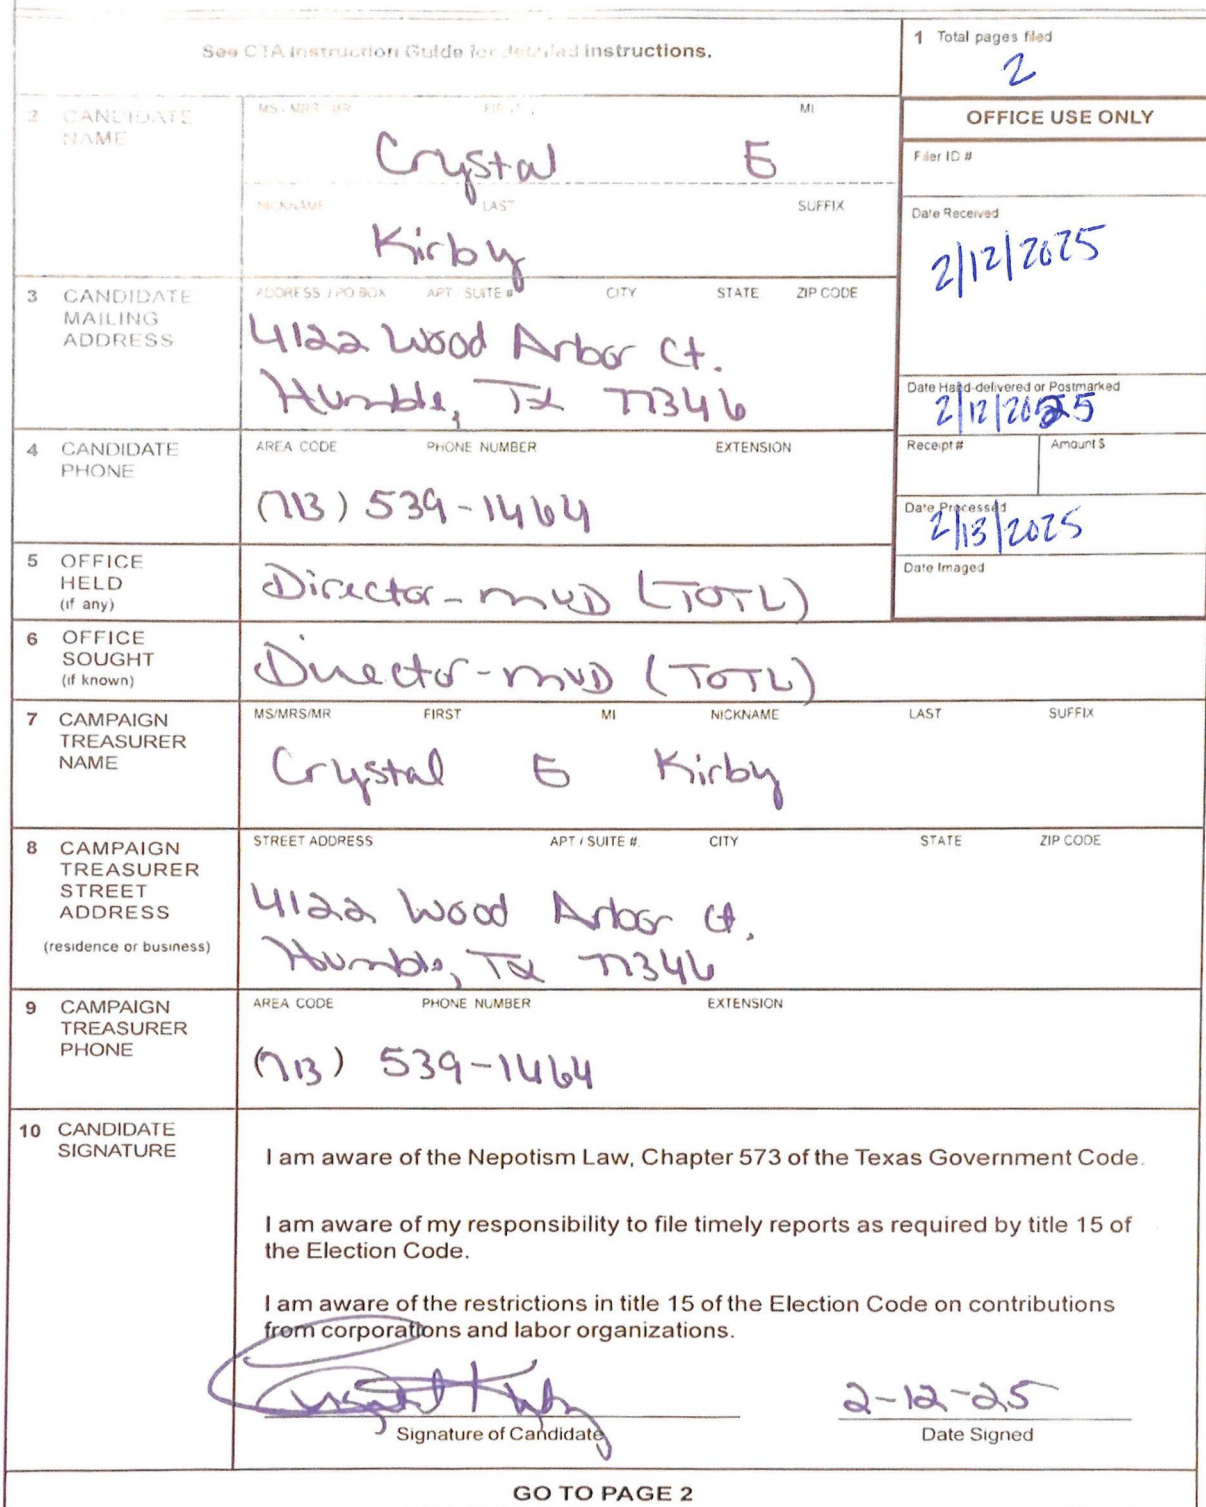 See CTA Instruction Guide for detailed instructions.
1 Total pages filed
2
2 CANDIDATE NAME
MS / MRS / MR FIRST MI
Crystal E
NICKNAME LAST SUFFIX
Kirby
OFFICE USE ONLY
Filer ID #
Date Received
2/12/2025
3 CANDIDATE MAILING ADDRESS
ADDRESS / PO BOX APT / SUITE # CITY STATE ZIP CODE
4122 Wood Arbor Ct.
Humble, TX 77346
Date Hand-delivered or Postmarked
2/12/2025
4 CANDIDATE PHONE
AREA CODE PHONE NUMBER EXTENSION
(713) 539-1464
Receipt # Amount $
Date Processed
2/13/2025
Date Imaged
5 OFFICE HELD (if any)
Director-MUD (TOTL)
6 OFFICE SOUGHT (if known)
Director-MUD (TOTL)
7 CAMPAIGN TREASURER NAME
MS/MRS/MR FIRST MI NICKNAME LAST SUFFIX
Crystal E Kirby
8 CAMPAIGN TREASURER STREET ADDRESS
(residence or business)
STREET ADDRESS APT / SUITE # CITY STATE ZIP CODE
4122 Wood Arbor Ct.
Humble, TX 77346
9 CAMPAIGN TREASURER PHONE
AREA CODE PHONE NUMBER EXTENSION
(713) 539-1464
10 CANDIDATE SIGNATURE
I am aware of the Nepotism Law, Chapter 573 of the Texas Government Code.
I am aware of my responsibility to file timely reports as required by title 15 of
the Election Code.
I am aware of the restrictions in title 15 of the Election Code on contributions
from corporations and labor organizations.
Crystal Kirby 2-12-25
Signature of Candidate Date Signed
GO TO PAGE 2